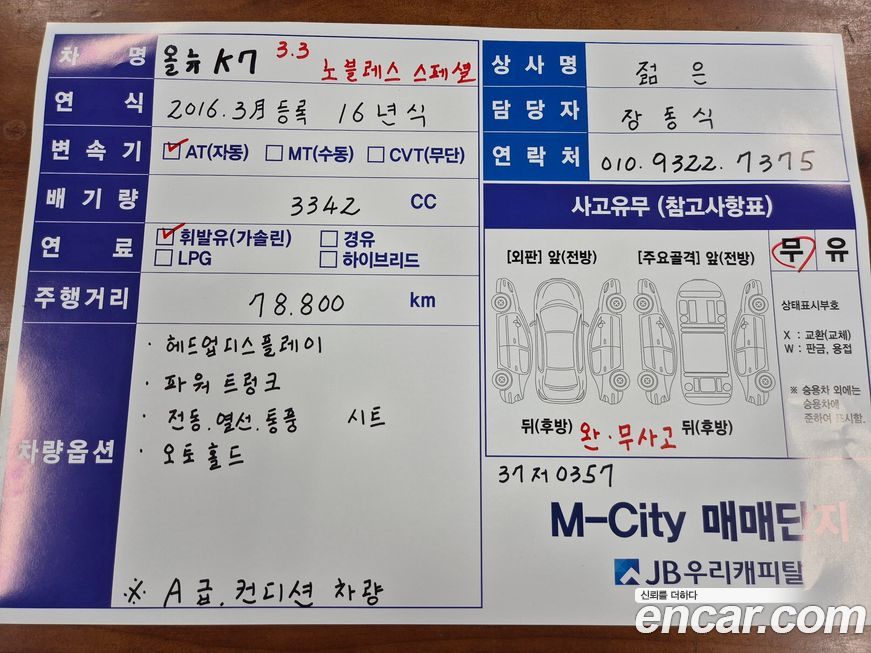 차 명 올뉴 K7 3.3 노블레스 스페셜
연 식 2016.3月 등록 16년식
변 속 기 AT(자동) MT(수동) CVT(무단)
배 기 량 3342 CC
연 료 휘발유(가솔린) 경유
LPG 하이브리드
주행거리 78.800 km
차량옵션
· 헤드업디스플레이
· 파워트렁크
· 전동.열선.통풍 시트
· 오토홀드
※ A급.컨디션 차량
상 사 명 젊은
담 당 자 장동식
연 락 처 010.9322.7375
사고유무 (참고사항표)
[외판] 앞(전방) [주요골격] 앞(전방) 무 유
상태표시부호
X : 교환(교체)
W : 판금, 용접
※ 승용차 외에는
승용차에
준하여 표시함.
뒤(후방) 완·무사고 뒤(후방)
37저0357
M-City 매매단지
JB우리캐피탈
신뢰를 더하다
encar.com